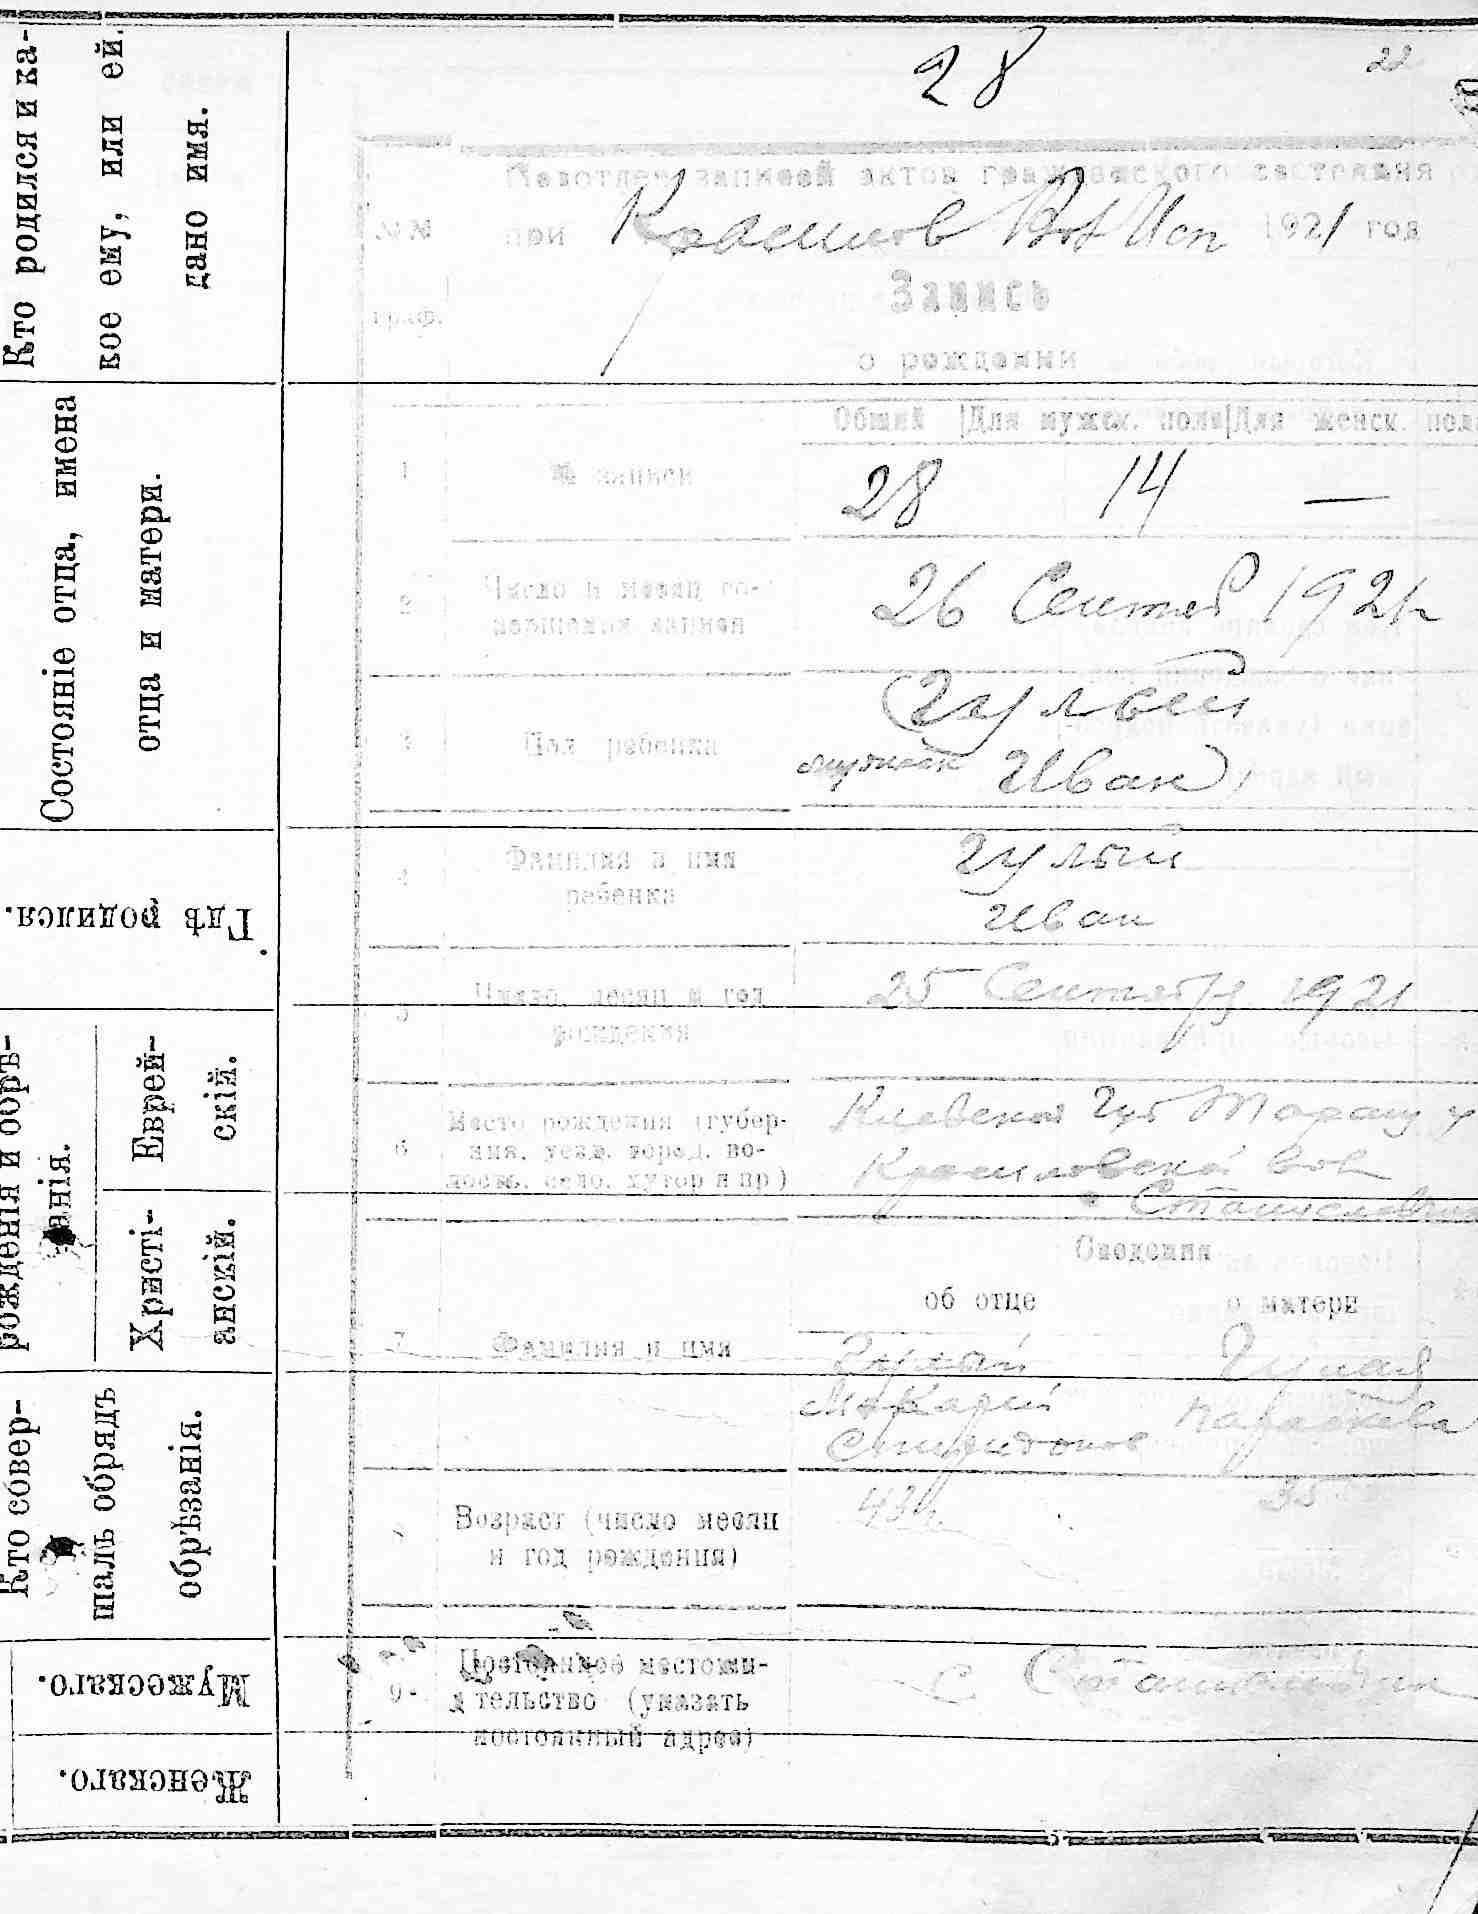 28
22
Кто родился и ка-
кое ему, или ей.
дано имя.
Подотдел записей актов гражданского состояния
при Красилов Вол Исп 1921 год
№№
граф.
Запись
о рождении
Состояніе отца, имена
отца и матери.
Общий | Для мужск. пола | Для женск. пола
1 № записи 28 14 —
2 Число и месяц со-
вершения записи
26 Сентяб 1921 г
3 Пол ребенка
(Гулый
мужской Иван)
Гдѣ родился.
4 Фамилия и имя
ребенка
Гулый
Иван
5 Число, месяц и год
рождения
25 Сентября 1921
рожденія и обрѣ-
занія.
Еврей-
скій.
Христі-
анскій.
6 Место рождения (губер-
ния, уезд, город, во-
лость, село, хутор и пр)
Киевской Губ Таращ у
Красиловской вол
Сведения
об отце о матери
7 Фамилия и имя
Гулый Гулая
Макарий Параскева
Спиридонов
Кто совер-
шалъ обрядъ
обрѣзанія.
Возраст (число месяц
и год рождения)
43 г. 35
Мужескаго.
9 Постоянное местожи-
тельство (указать
постоянный адрес)
с
Женскаго.